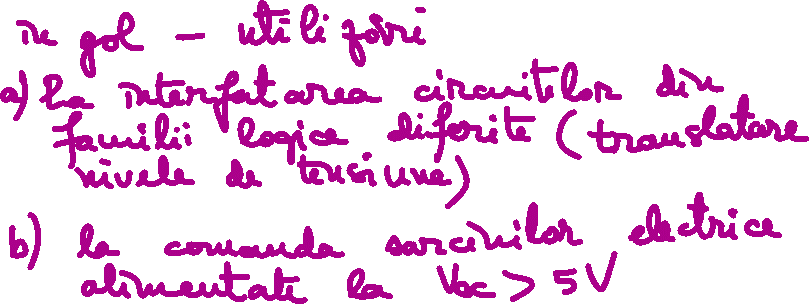 in gol - utilizări
a) La interfatarea circuitelor din
familii logice diferite (translatare
nivele de tensiune)
b) la comanda sarcinilor electrice
alimentate la Vcc > 5V